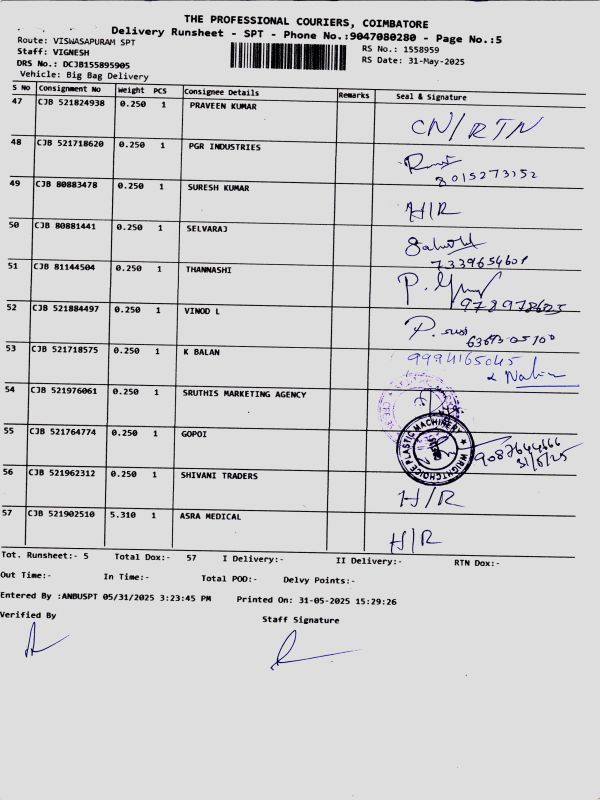 THE PROFESSIONAL COURIERS, COIMBATORE
Delivery Runsheet - SPT - Phone No.:9047080280 - Page No.:5
Route: VISWASAPURAM SPT
RS No.: 1558959
Staff: VIGNESH
RS Date: 31-May-2025
DRS No.: DCJB155895905
Vehicle: Big Bag Delivery
S No Consignment No Weight PCS Consignee Details Remarks Seal & Signature
47 CJB 521824938 0.250 1 PRAVEEN KUMAR CN/RTN
48 CJB 521718620 0.250 1 PGR INDUSTRIES
8015273152
49 CJB 80883478 0.250 1 SURESH KUMAR H/R
50 CJB 80881441 0.250 1 SELVARAJ
7339654601
51 CJB 81144504 0.250 1 THANNASHI P.
52 CJB 521884497 0.250 1 VINOD L P.
53 CJB 521718575 0.250 1 K BALAN 9994165045
54 CJB 521976061 0.250 1 SRUTHIS MARKETING AGENCY
55 CJB 521764774 0.250 1 GOPOI
WRIGHTCHOICE PLASTIC MACHINERY
9087644666
31/5/25
56 CJB 521962312 0.250 1 SHIVANI TRADERS H/R
57 CJB 521902510 5.310 1 ASRA MEDICAL H/R
Tot. Runsheet:- 5 Total Dox:- 57 I Delivery:- II Delivery:- RTN Dox:-
Out Time:- In Time:- Total POD:- Delvy Points:-
Entered By :ANBUSPT 05/31/2025 3:23:45 PM Printed On: 31-05-2025 15:29:26
Verified By Staff Signature